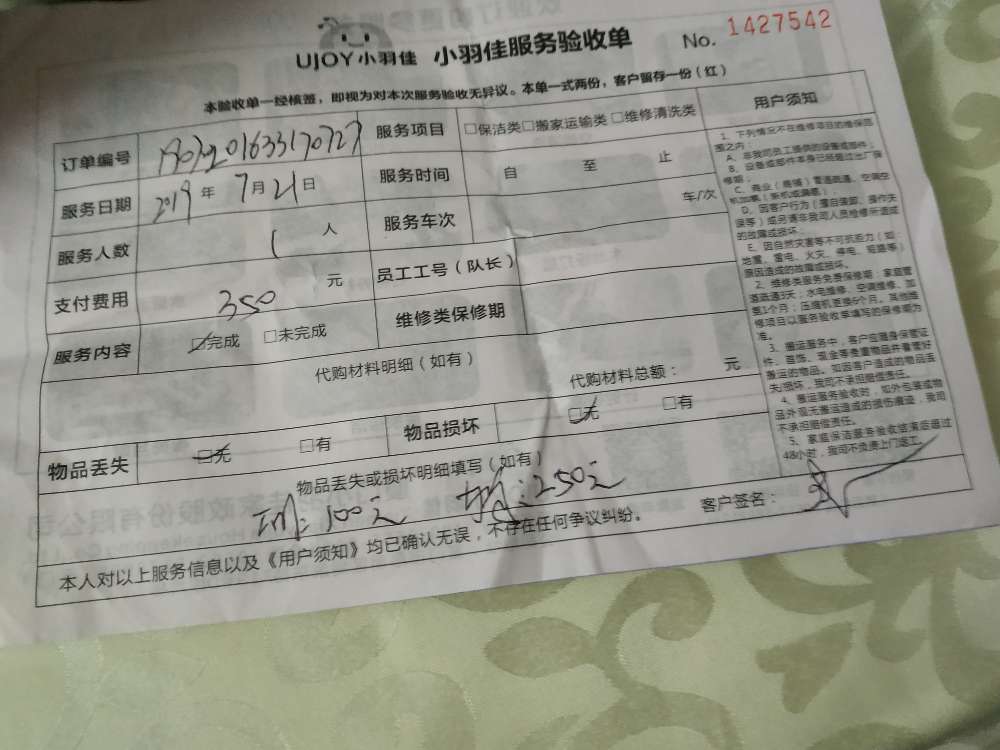 UJOY小羽佳 小羽佳服务验收单 No. 1427542
本验收单一经核签，即视为对本次服务验收无异议。本单一式两份，客户留存一份（红）
订单编号 服务项目 □保洁类□搬家运输类 □维修清洗类
服务日期 2019年 7月21日 服务时间 自 至 止
服务人数 1 人 服务车次 车/次
支付费用 350 元 员工工号（队长）
服务内容 □完成 □未完成 维修类保修期
代购材料明细（如有）
代购材料总额： 元
物品丢失 □无 □有 物品损坏 □无 □有
物品丢失或损坏明细填写（如有）
100元 250元
本人对以上服务信息以及《用户须知》均已确认无误，不存在任何争议纠纷。 客户签名：
用户须知
1、下列情况不在维修项目的维保范
围之内：
A、非我司员工提供的设备或部件；
B、设备或部件本身已经超过出厂保
修期；
C、商业（商铺）管道疏通、空调空
机加氟（新机或满氟）；
D、因客户行为（擅自装卸、操作失
误等）或另请非我司人员检修所造成
的故障或损坏；
E、因自然灾害等不可抗拒力（如：
地震、雷电、火灾、停电、短路等）
原因造成的故障或损坏。
2、维修类服务免费保修期：家庭管
道疏通3天；水电维修、空调维修、加
氟1个月；压缩机更换6个月。其他维
修项目以服务验收单填写的保修期为
准。
3、搬运服务中，客户应随身保管证
件、首饰、现金等贵重物品并看管好
搬运的物品。如因客户造成的物品丢
失/损坏，我司不承担赔偿责任。
4、搬运服务验收时，如外包装或物
品外观无搬运造成的损伤痕迹，我司
不承担赔偿责任。
5、家庭保洁服务验收结束后超过
48小时，我司不负责上门返工。